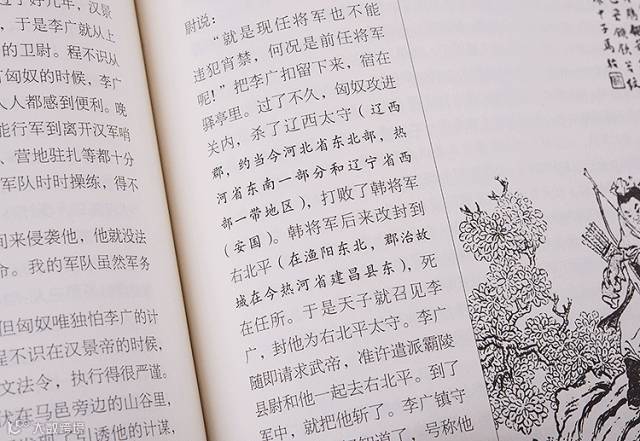 过了好几年，汉景
于是李广就从上
的卫尉。程不识从
有匈奴的时候，李广
人人都感到便利。晚
能行军到离开汉军哨
、营地驻扎等都十分
军队时时操练，得不
间来侵袭他，他就没法
令。我的军队虽然军务
但匈奴唯独怕李广的计
程不识在汉景帝的时候，
文法令，执行得很严谨。
伏在马邑旁边的山谷里，
引诱他的计谋，
尉说：
“就是现任将军也不能
违犯宵禁，何况是前任将军
呢！”把李广扣留下来，宿在
驿亭里。过了不久，匈奴攻进
关内，杀了辽西太守（辽西
郡，约当今河北省东北部，热
河省东南一部分和辽宁省西
部一带地区），打败了韩将军
（安国）。韩将军后来改封到
右北平（在渔阳东北，郡治故
城在今热河省建昌县东），死
在任所。于是天子就召见李
广，封他为右北平太守。李广
随即请求武帝，准许遣派霸陵
县尉和他一起去右北平。到了
军中，就把他斩了。李广镇守
知道了，号称他
大歌跨境